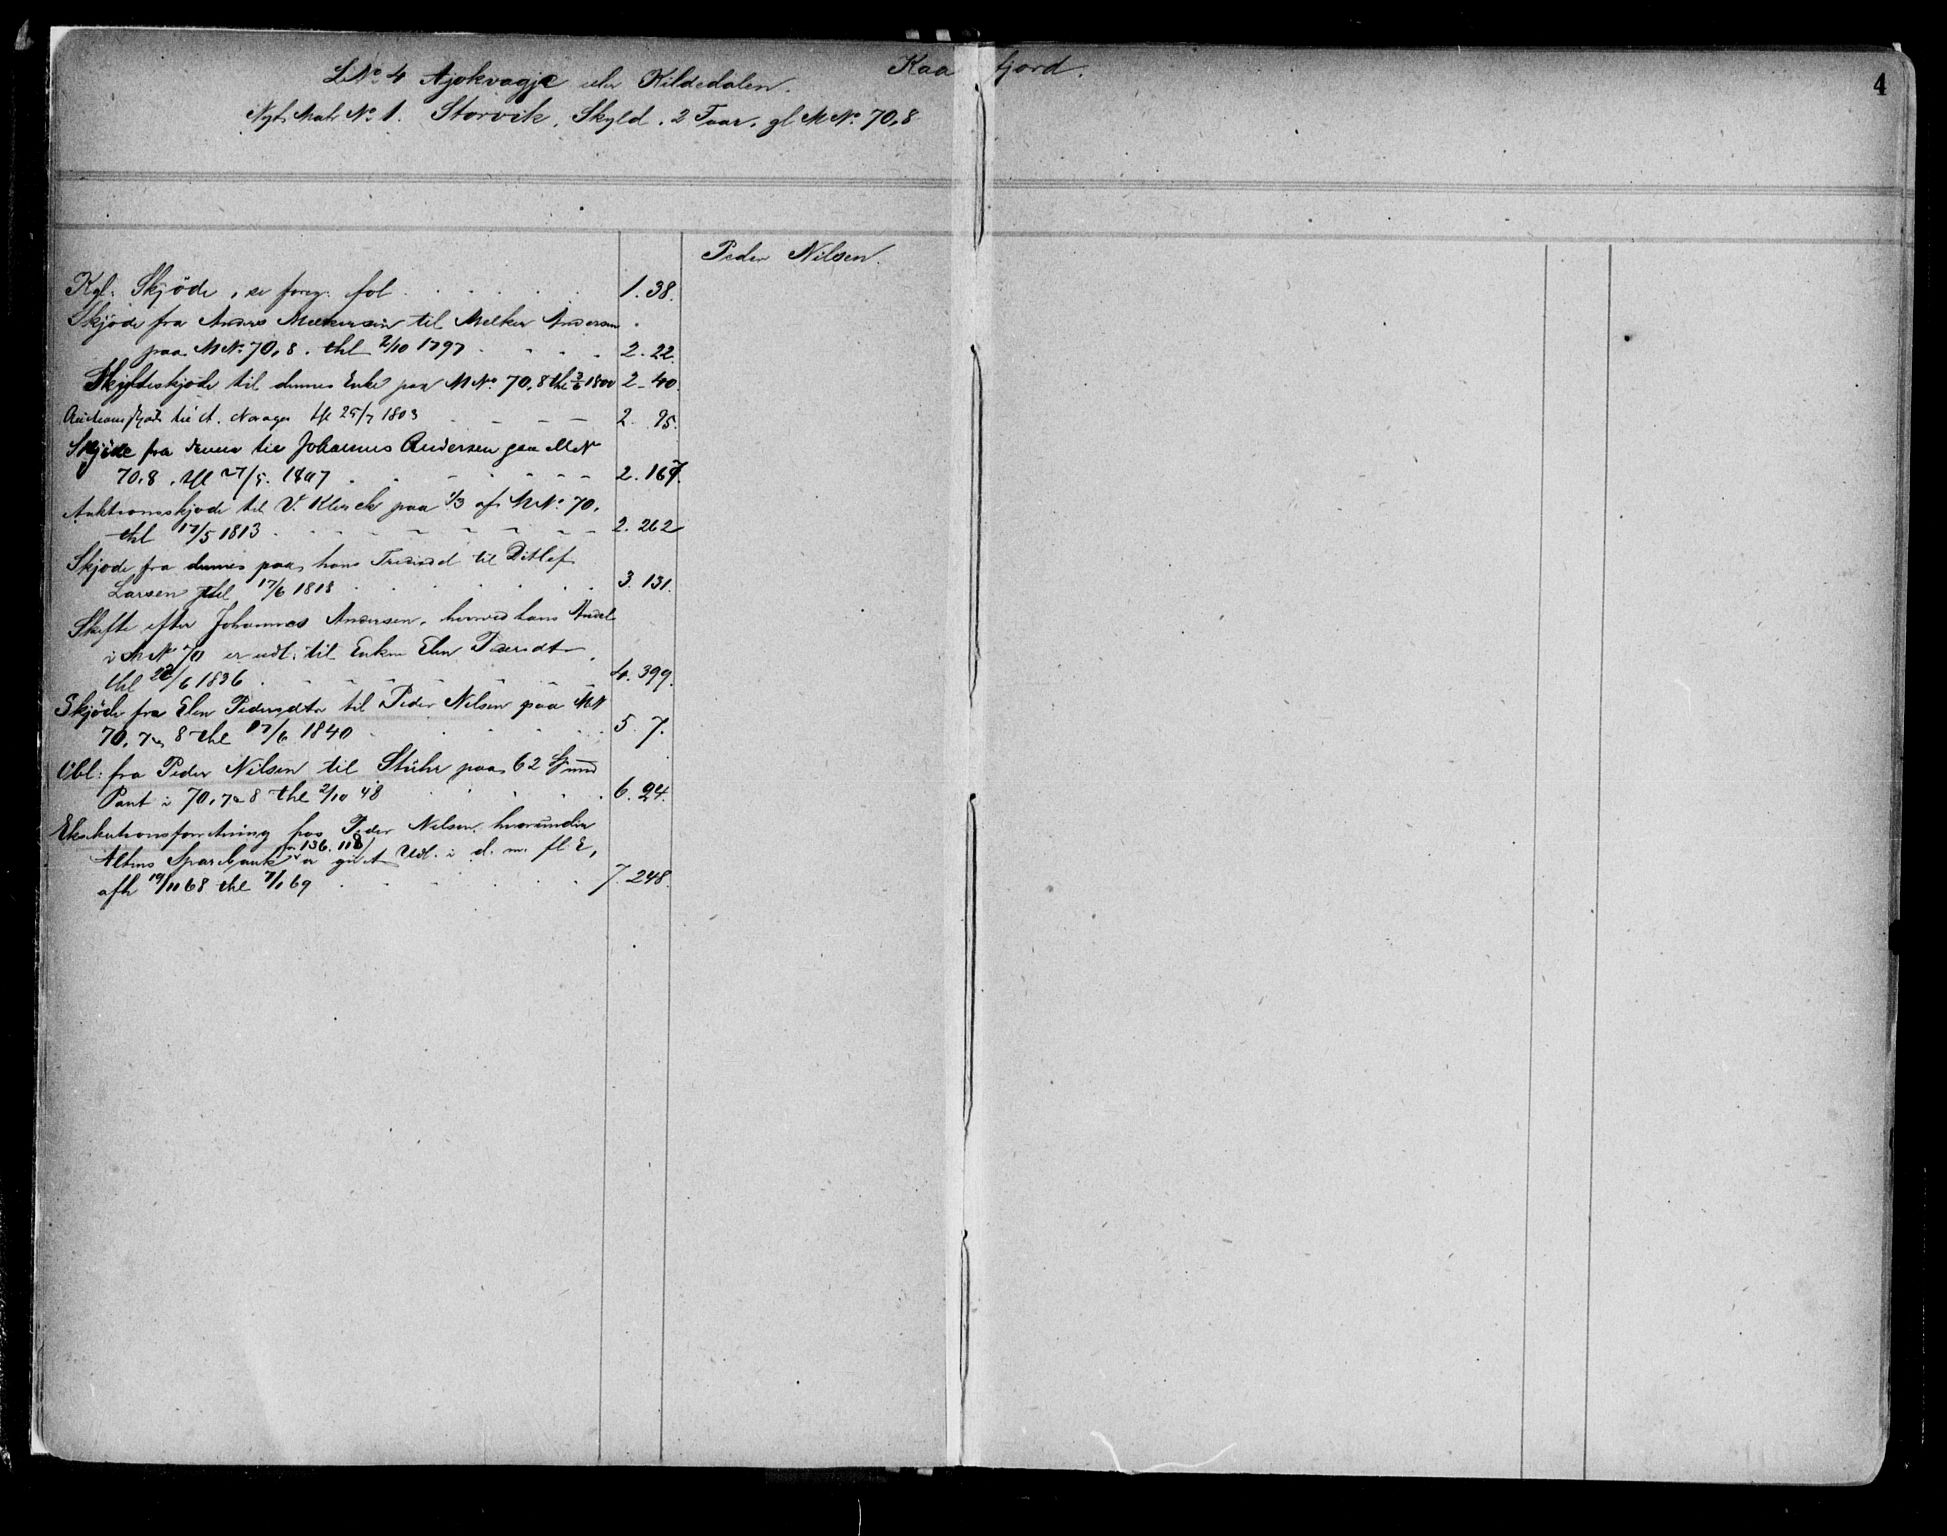 Kaafjord.
4
LNo. 4 Ajokvagje eller Kildedalen.
Nyt Matr No. 1. Storvik, Skyld. 2 Taar. gl MNo. 70,8
Peder Nilsen.
Kgl. Skjöde, se foreg. fol. 1. 38.
Skjöde fra Anders Melkersen til Melker Andersen
paa MNo. 70,8. thl 2/10 1797 2. 22.
Skifteskjöde til dennes Enke paa MNo. 70,8 thl 3/6 1800 2 - 40.
Auctionsskjöde til A. Norager thl 25/7 1803 2. 95.
Skjöde fra denne til Johannes Andersen paa MN
70,8. thl 27/5. 1807 2. 167.
Auktionsskjöde til V. Klerck paa 1/3 af MNo. 70.
thl 17/5 1813 2. 262
Skjöde fra dennes paa hans Trediedel til Ditlef
Larsen thl 17/6 1818 3. 131.
Skifte efter Johannes Andersen, hvorved hans Andel
i MNo 70 er udl. til Enken Elen Pedersdtr
thl 22/6 1836 4. 399.
Skjöde fra Elen Pedersdtr til Peder Nilsen paa MN
70, 7 & 8 thl 17/6 1840 5. 7.
Obl: fra Peder Nilsen til Stuhr paa 62 Sp mod
Pant i 70, 7 & 8 thl 2/10 48 6. 24.
Eksekutionsforretning hos Peder Nilsen, hvorunder
Altens Sparebank for 136. 118 er givet Udl. i d. m. fl E,
afh 19/11 68 thl 7/1 69 7. 248.